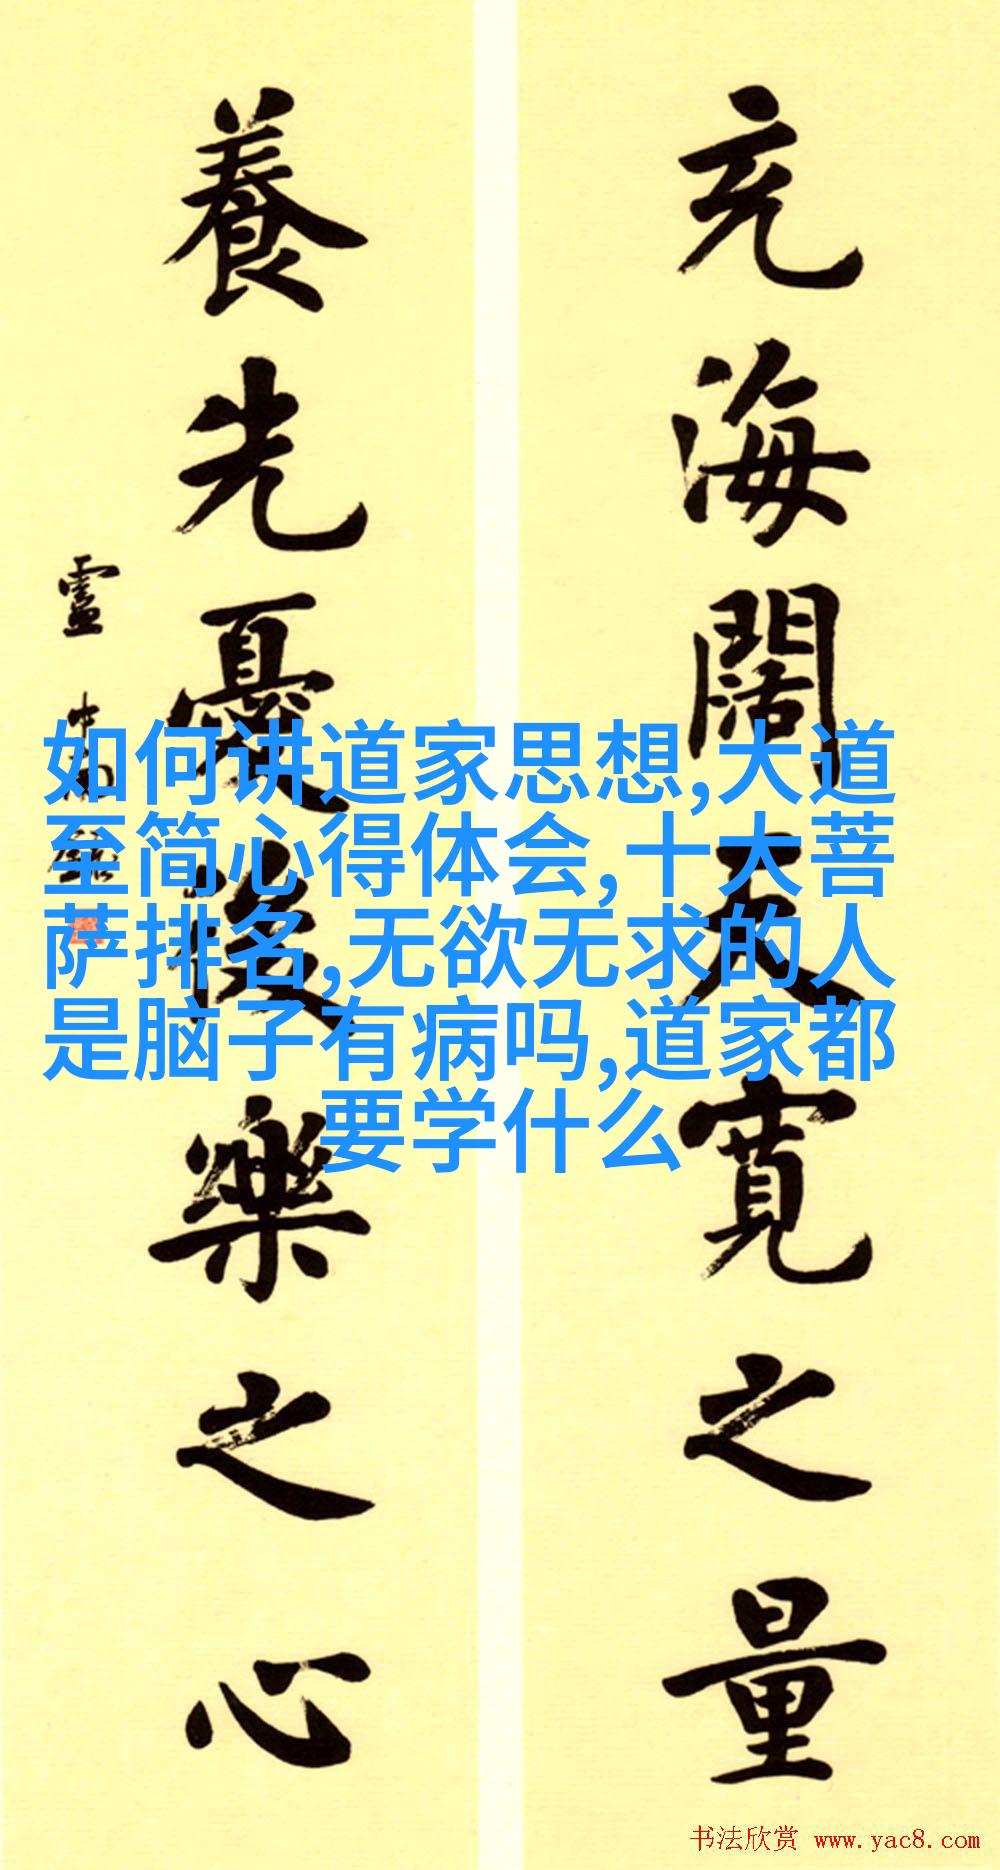 充海闊天寬之量
養先憂後樂之心
如何讲道家思想,大道
至简心得体会,十大菩
萨排名,无欲无求的人
是脑子有病吗,道家都
要学什么
书法欣赏 www.yac8.com